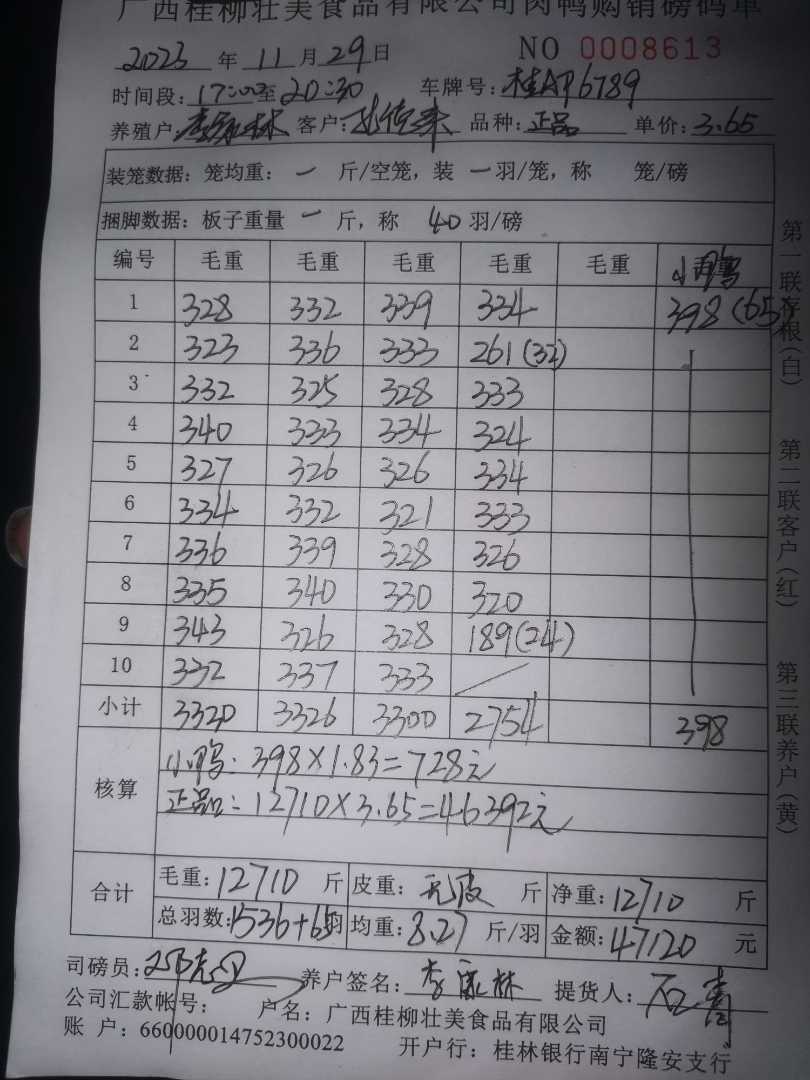 广西桂柳壮美食品有限公司肉鸭购销磅码单
2023 年 11 月 29 日 NO 0008613
时间段: 17:00 至 20:30 车牌号: 桂AP6789
养殖户: 李家林 客户: 品种: 正品 单价: 3.65
装笼数据: 笼均重: 一 斤/空笼, 装 一 羽/笼, 称 笼/磅
捆脚数据: 板子重量 一 斤, 称 40 羽/磅
编号 毛重 毛重 毛重 毛重 毛重 小鸭
1 328 332 339 334 398(65)
2 323 336 333 261(32)
3 332 325 328 333
4 340 333 334 324
5 327 326 326 334
6 334 332 321 333
7 336 339 328 326
8 335 340 330 320
9 343 326 328 189(24)
10 332 337 333 /
小计 3320 3326 3300 2754 398
核算 小鸭: 398×1.83=728元
正品: 12710×3.65=46392元
合计 毛重: 12710 斤 皮重: 无皮 斤 净重: 12710 斤
总羽数: 1536+65羽 均重: 8.27 斤/羽 金额: 47120 元
司磅员: 养户签名: 李家林 提货人:
公司汇款帐号: 户名: 广西桂柳壮美食品有限公司
账 户: 660000014752300022 开户行: 桂林银行南宁隆安支行
第一联存根(白) 第二联客户(红) 第三联养户(黄)